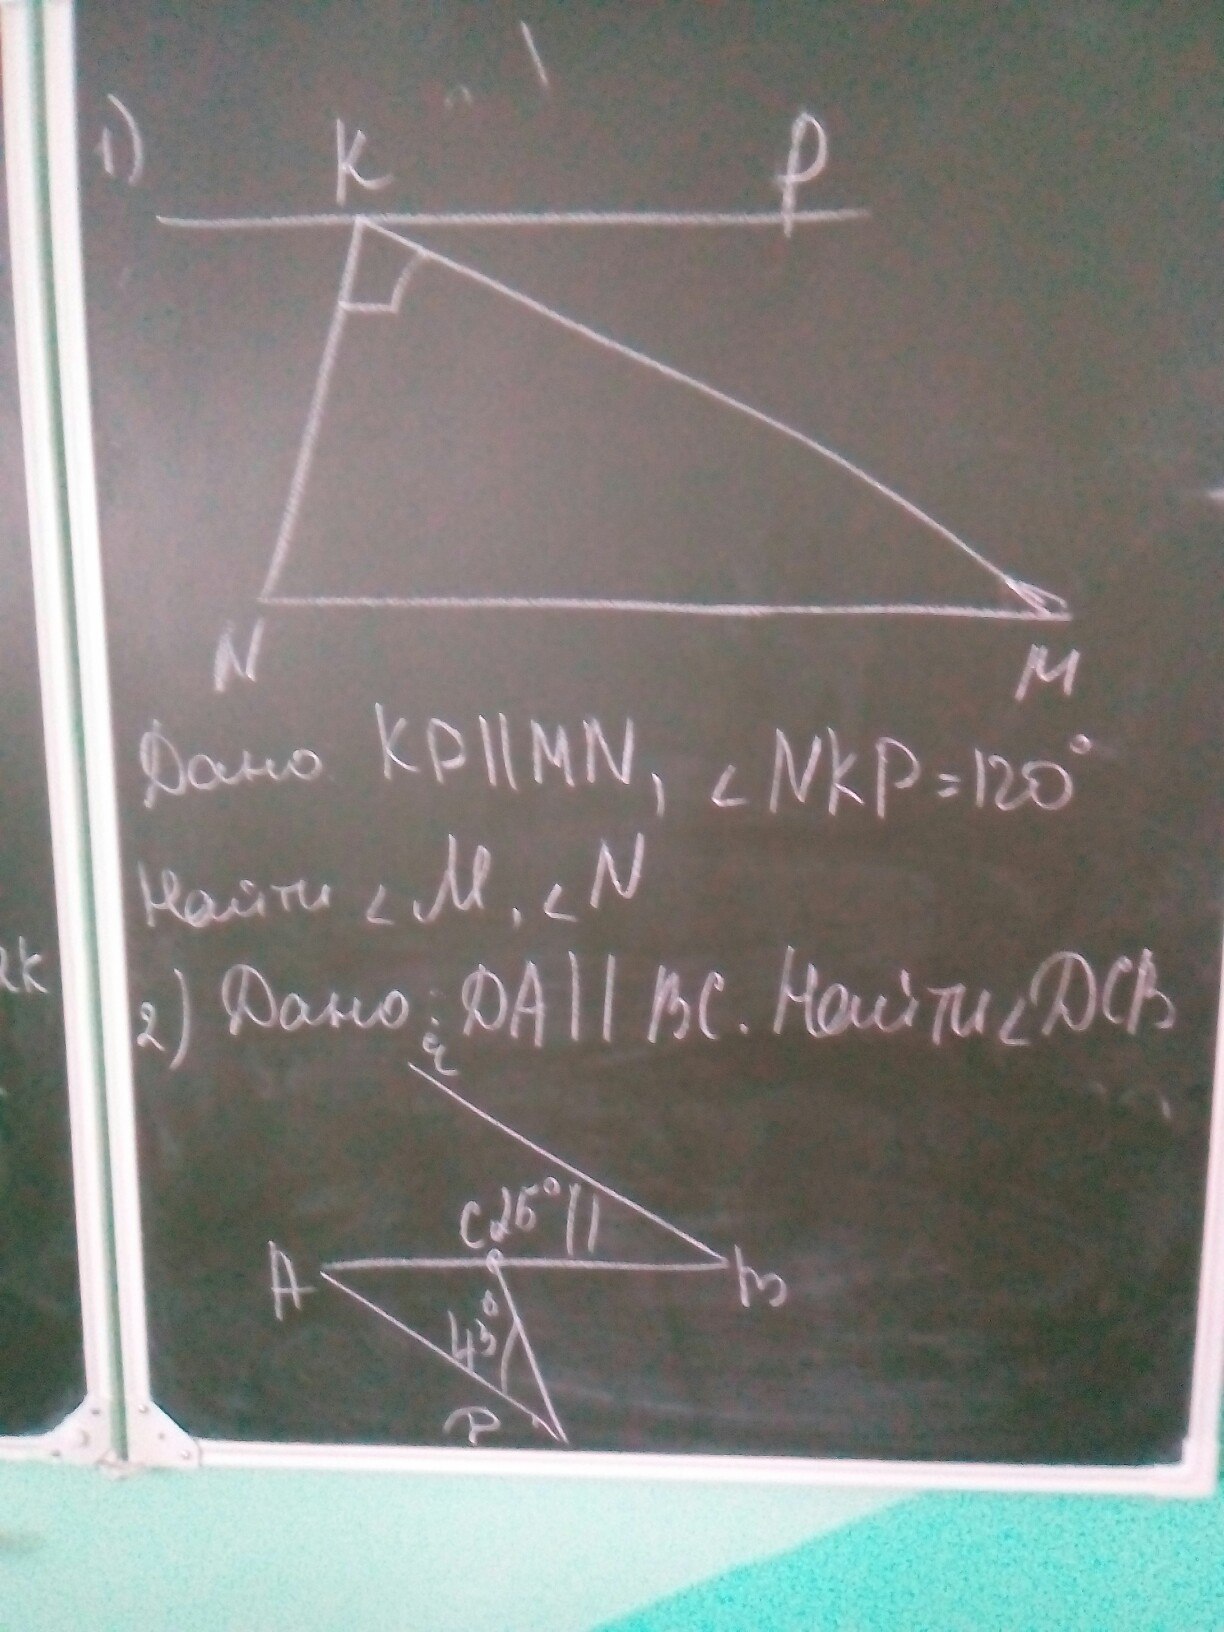 1)
K P
N M
Дано KP||MN, ∠NKP=120°
Найти ∠M, ∠N
2) Дано: DA||BC. Найти ∠DCB
C 26°
A B
43°